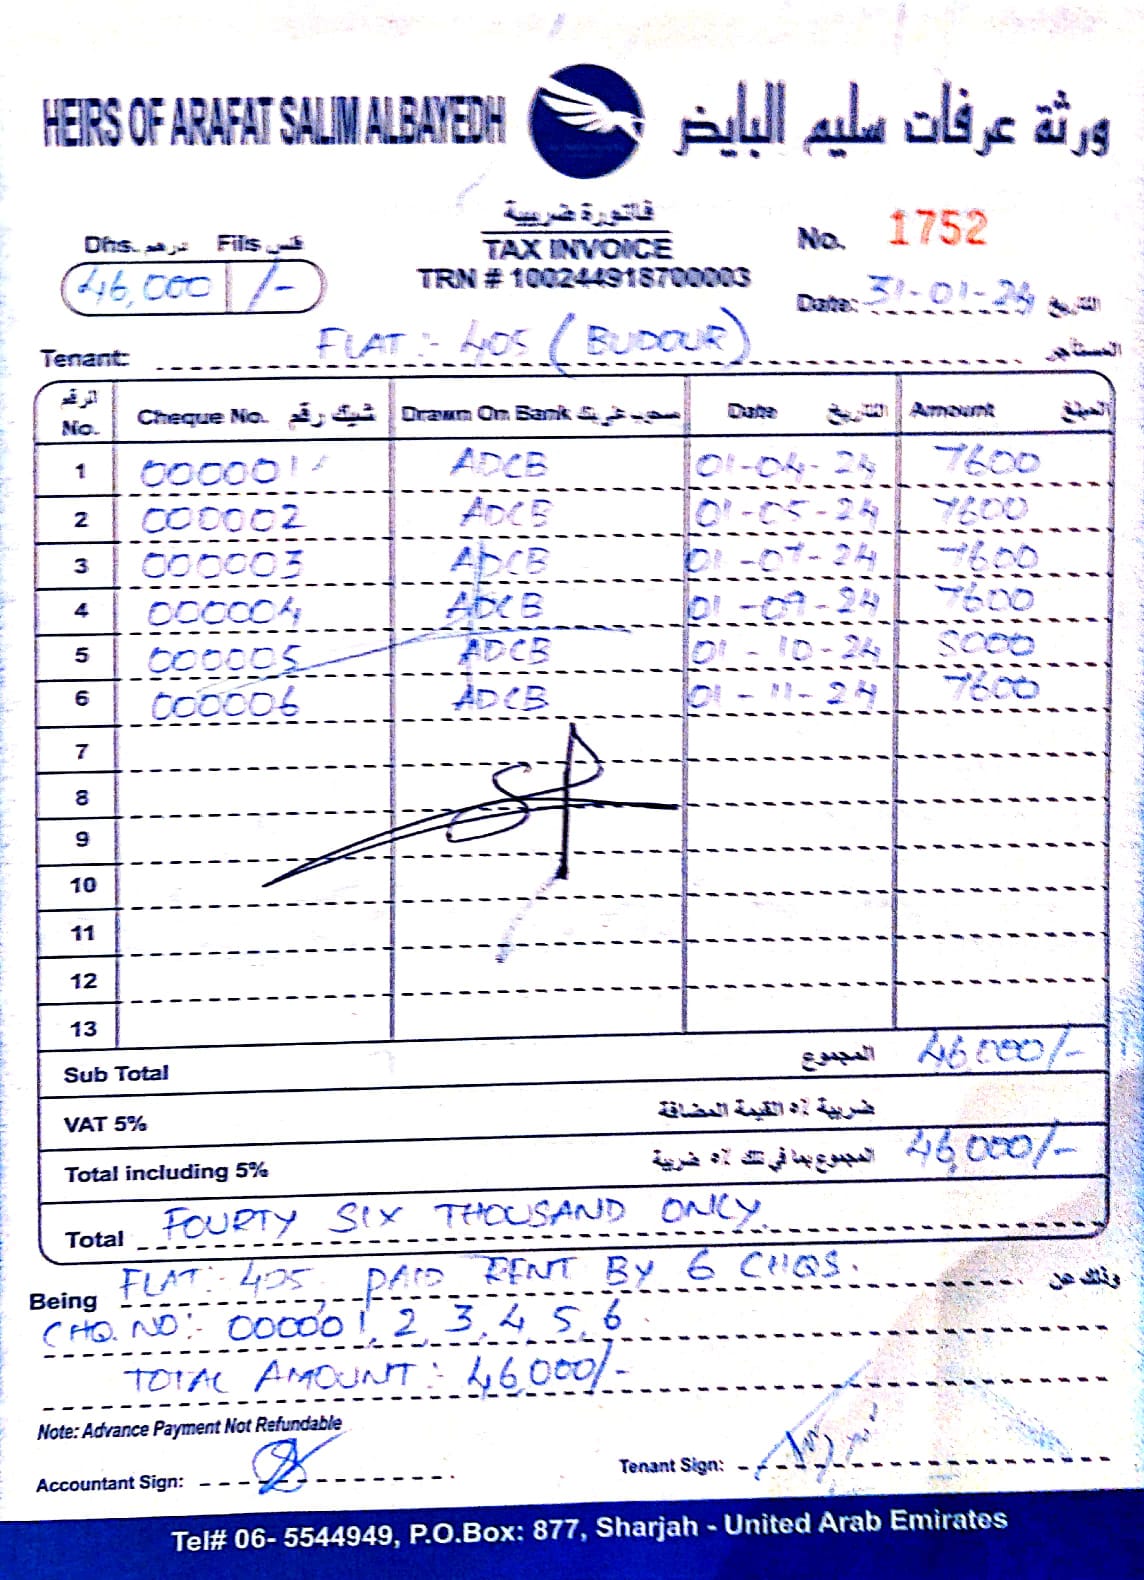 HEIRS OF ARAFAT SALIM ALBAYEDH ورثة عرفات سليم البايض
فاتورة ضريبية
TAX INVOICE
TRN # 100244918700003
Dhs. درهم Fils فلس
46,000 /-
No. 1752
Date: 31-01-24 التاريخ
Tenant: FLAT :- 405 (BUDOUR) المستأجر
الرقم No. Cheque No. شيك رقم Drawn On Bank مسحوب على بنك Date التاريخ Amount المبلغ
1 000001 ADCB 01-04-24 7600
2 000002 ADCB 01-05-24 7600
3 000003 ADCB 01-07-24 7600
4 000004 ADCB 01-09-24 7600
5 000005 ADCB 01-10-24 8000
6 000006 ADCB 01-11-24 7600
7
8
9
10
11
12
13
Sub Total المجموع 46,000/-
VAT 5% ضريبة ٥٪ القيمة المضافة
Total including 5% المجموع بما في تلك ٥٪ ضريبة 46,000/-
Total FOURTY SIX THOUSAND ONLY.
Being FLAT:- 405, PAID RENT BY 6 CHQS. وذلك عن
CHQ. NO:- 000001, 2, 3, 4, 5, 6.
TOTAL AMOUNT :- 46,000/-
Note: Advance Payment Not Refundable
Accountant Sign: Tenant Sign:
Tel# 06- 5544949, P.O.Box: 877, Sharjah - United Arab Emirates